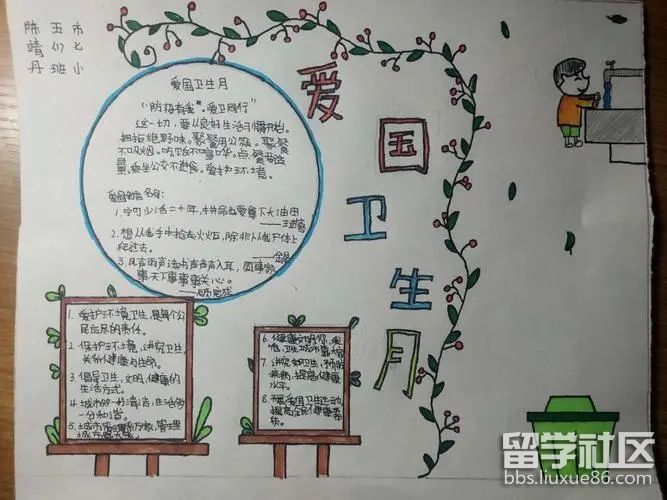 市七小
五(4)班
陈靖丹
爱国卫生月
爱国卫生月
"防控有我，爱卫同行"
这一切，要从良好生活习惯开始。
拒绝野味。聚餐用公筷。聚餐
不吸烟。吃饭不喧哗。点餐要适
量。乘坐公交不进食。爱护环境。
名言：
1.宁可少活二十年，拼命也要拿下大油田
——王进喜
2.想从我手中抢走火炬，除非从我尸体上
——金晶
3.风声雨声读书声声声入耳，国事家
事天下事事事关心。
——顾宪成
1.爱护环境卫生，是每个公
民应尽的责任。
2.保护环境，讲究卫生，
关系健康与生命。
3.倡导卫生，文明，健康的
生活方式。
4.城市多一分清洁，生活多
一分和谐。
7.讲究卫生，预防
疾病，提高健康
水平。
8.开展爱国卫生运动，
提高全民健康素
质。
留学社区
bbs.liuxue86.com